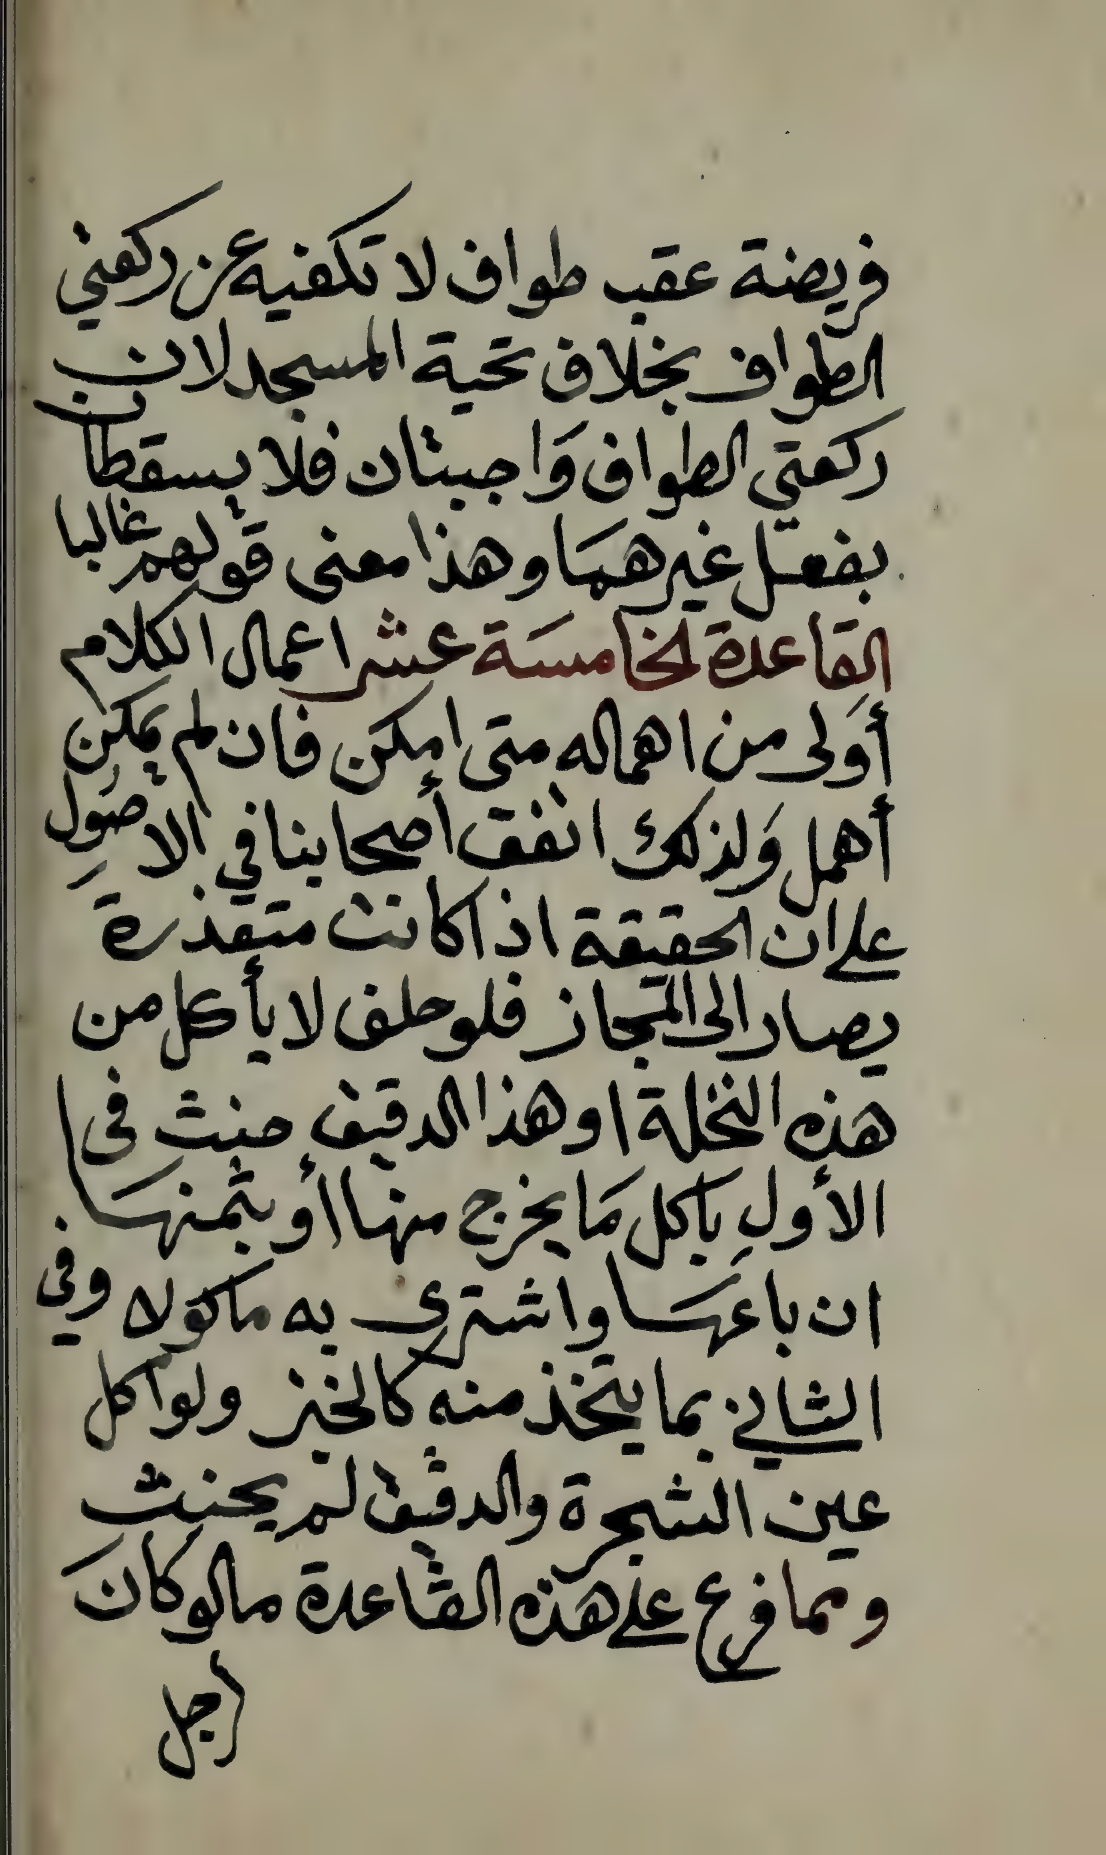 فريضة عقب طواف لا تكفيه عن ركعتي
الطواف بخلاف تحية المسجد لان
ركعتي الطواف وَاجبتان فلا يسقطان
بفعل غيرهمَا وهذا معنى قولهم غالبا
القاعدة الخامسَة عشر اعمال الكلام
أَولى من اهماله متى امكن فان لم يمكن
أهمل وَلذلك اتفق أصحابنا في الاصُولِ
على ان الحقيقة اذا كانت متعذرة
يصار الى المجاز فلو حلف لا يأكل من
هذه النخلة او هذا الدقيق حنث في
الأول بأكل مَا يخرج منها أو بثمنهَا
ان باعهَا واشترى به ماكولا وفي
الثاني بما يتخذ منه كالخبز ولو اكل
عين الشجرة والدقيق لم يحنث
ومما فرع على هذه القاعدة مالو كانَ
رجل